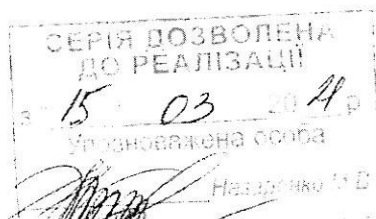 СЕРІЯ ДОЗВОЛЕНА
ДО РЕАЛІЗАЦІЇ
з " 15 " 03 20 21 р
Уповноважена особа
Назаренко